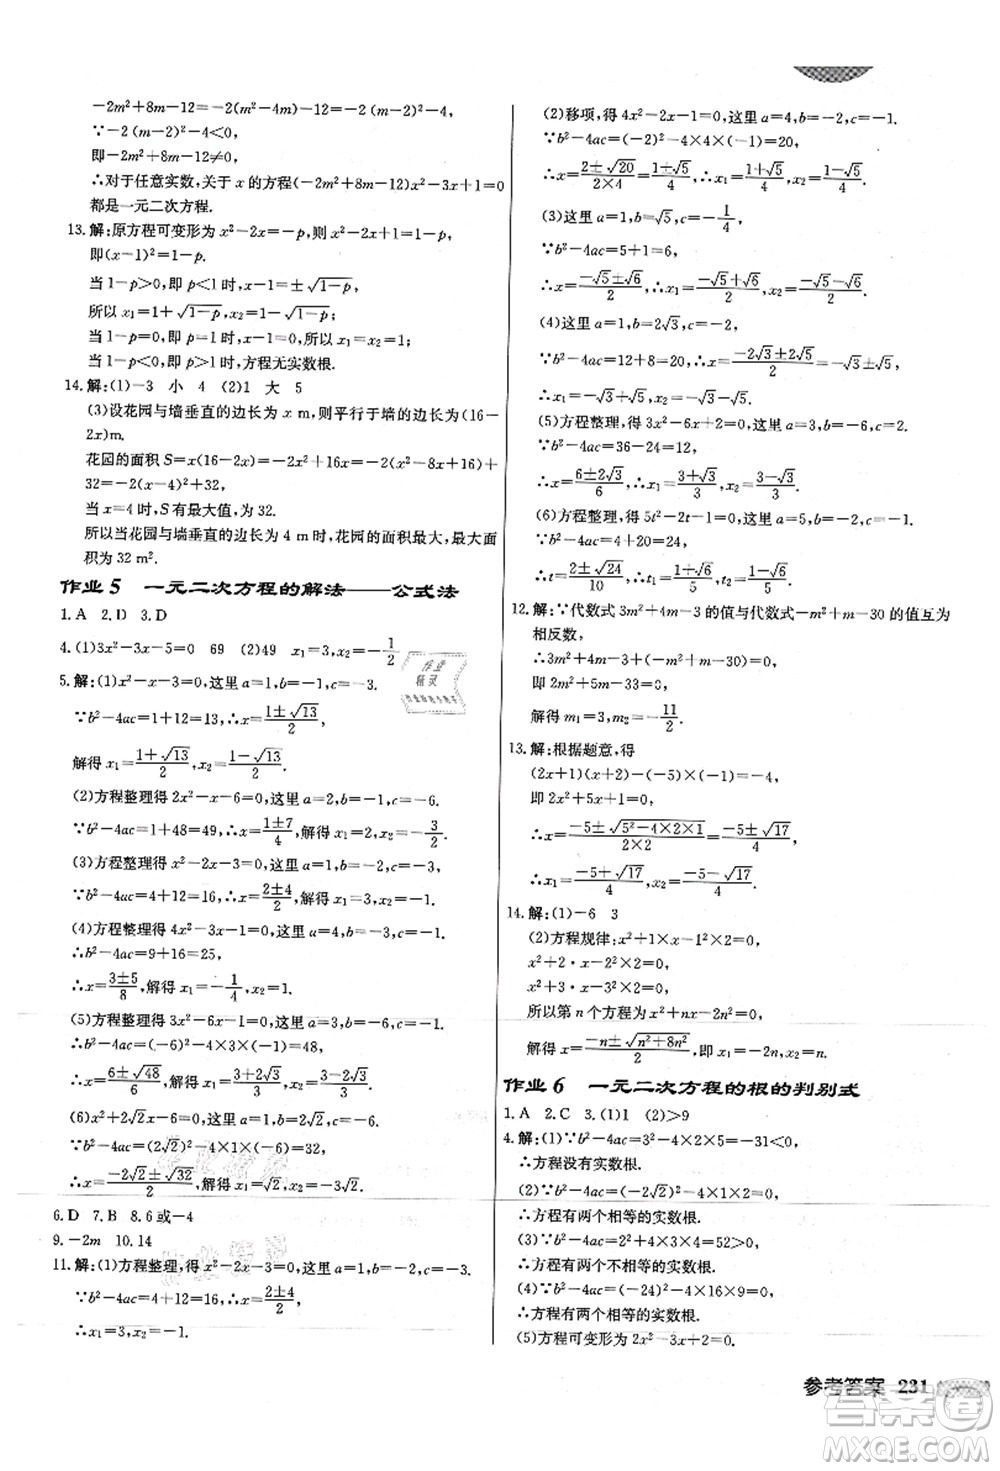 －2m²＋8m－12＝－2(m²－4m)－12＝
∵－2(m－2)²－4＜0,
即－2m²＋8m－12≠0,
∴对于任意实数,关于x的方程(－2m²＋8m－12)x²－3x＋1＝0
都是一元二次方程.
13.解:原方程可变形为x²－2x＝－p,则x²－2x＋1＝1－p,
即(x－1)²＝1－p.
当1－p＞0,即p＜1时,x－1＝±√(1－p),
所以x₁＝1＋√(1－p),x₂＝1－√(1－p);
当1－p＝0,即p＝1时,x－1＝0,所以x₁＝x₂＝1;
当1－p＜0,即p＞1时,方程无实数根.
14.解:(1)－3 小 4 (2)1 大 5
(3)设花园与墙垂直的边长为x m,则平行于墙的边长为(16－
2x)m.
花园的面积S＝x(16－2x)＝－2x²＋16x＝－2(x²－8x＋16)＋
32＝－2(x－4)²＋32,
当x＝4时,S有最大值,为32.
所以当花园与墙垂直的边长为4 m时,花园的面积最大,最大面
积为32 m².
作业5 一元二次方程的解法——公式法
1.A 2.D 3.D
4.(1)3x²－3x－5＝0 69 (2)49 x₁＝3,x₂＝－1/2
5.解:(1)x²－x－3＝0,这里a＝1,b＝－1,c＝－3.
∵b²－4ac＝1＋12＝13,∴x＝(1±√13)/2,
解得x₁＝(1＋√13)/2,x₂＝(1－√13)/2.
(2)方程整理得2x²－x－6＝0,这里a＝2,b＝－1,c＝－6.
∵b²－4ac＝1＋48＝49,∴x＝(1±7)/4,解得x₁＝2,x₂＝－3/2.
(3)方程整理得x²－2x－3＝0,这里a＝1,b＝－2,c＝－3,
∵b²－4ac＝4＋12＝16,∴x＝(2±4)/2,解得x₁＝3,x₂＝－1.
(4)方程整理得4x²－3x－1＝0,这里a＝4,b＝－3,c＝－1,
∴b²－4ac＝9＋16＝25,
∴x＝(3±5)/8,解得x₁＝－1/4,x₂＝1.
(5)方程整理得3x²－6x－1＝0,这里a＝3,b＝－6,c＝－1,
∴b²－4ac＝(－6)²－4×3×(－1)＝48,
∴x＝(6±√48)/6,解得x₁＝(3＋2√3)/3,x₂＝(3－2√3)/3.
(6)方程整理得x²＋2√2x－6＝0,这里a＝1,b＝2√2,c＝－6.
∵b²－4ac＝(2√2)²－4×1×(－6)＝32,
∴x＝(－2√2±√32)/2,解得x₁＝√2,x₂＝－3√2.
6.D 7.B 8.6或－4
9.－2m 10.14
11.解:(1)方程整理,得x²－2x－3＝0,这里a＝1,b＝－2,c＝－3.
∵b²－4ac＝4＋12＝16,∴x＝(2±4)/2,
∴x₁＝3,x₂＝－1.
(2)移项,得4x²－2x－1＝0,这里a＝4,b＝－2,c＝－1.
∵b²－4ac＝(－2)²－4×4×(－1)＝20,
∴x＝(2±√20)/(2×4)＝(1±√5)/4,∴x₁＝(1＋√5)/4,x₂＝(1－√5)/4.
(3)这里a＝1,b＝√5,c＝－1/4,
∵b²－4ac＝5＋1＝6,
∴x＝(－√5±√6)/2,∴x₁＝(－√5＋√6)/2,x₂＝(－√5－√6)/2.
(4)这里a＝1,b＝2√3,c＝－2,
∵b²－4ac＝12＋8＝20,∴x＝(－2√3±2√5)/2＝－√3±√5,
∴x₁＝－√3＋√5,x₂＝－√3－√5.
(5)方程整理,得3x²－6x＋2＝0,这里a＝3,b＝－6,c＝2.
∵b²－4ac＝36－24＝12,
∴x＝(6±2√3)/6,∴x₁＝(3＋√3)/3,x₂＝(3－√3)/3.
(6)方程整理,得5t²－2t－1＝0,这里a＝5,b＝－2,c＝－1.
∵b²－4ac＝4＋20＝24,
∴t＝(2±2√6)/10,∴t₁＝(1＋√6)/5,t₂＝(1－√6)/5.
12.解:∵代数式3m²＋4m－3的值与代数式－m²＋m－30的值互为
相反数,
∴3m²＋4m－3－m²＋m－30＝0,
即2m²＋5m－33＝0,
解得m₁＝3,m₂＝－11/2.
13.解:根据题意,得
(2x＋1)(x＋2)－(－5)×(－1)＝－4,
即2x²＋5x＋1＝0,
∴x＝(－5±√(5²－4×2×1))/(2×2)＝(－5±√17)/4,
∴x₁＝(－5＋√17)/4,x₂＝(－5－√17)/4.
14.解:(1)－6 3
(2)方程规律:x²＋1·x－2×1²＝0,
x²＋2·x－2×2²＝0,
x²＋3·x－2×3²＝0,
所以第n个方程为x²＋nx－2n²＝0,
解得x＝(－n±√(n²＋8n²))/2,即x₁＝－2n,x₂＝n.
作业6 一元二次方程的根的判别式
1.A 2.C 3.(1)1 (2)＞9
4.解:(1)∵b²－4ac＝3²－4×2×5＝－31＜0,
∴方程没有实数根.
(2)∵b²－4ac＝(－2√2)²－4×1×2＝0,
∴方程有两个相等的实数根.
(3)∵b²－4ac＝2²＋4×2×6＝52＞0,
∴方程有两个不相等的实数根.
(4)∵b²－4ac＝(－24)²－4×16×9＝0,
∴方程有两个相等的实数根.
(5)方程可变形为2x²－3x＋2＝0,
参考答案 231
作业
精灵
答案圈
MXQE.COM